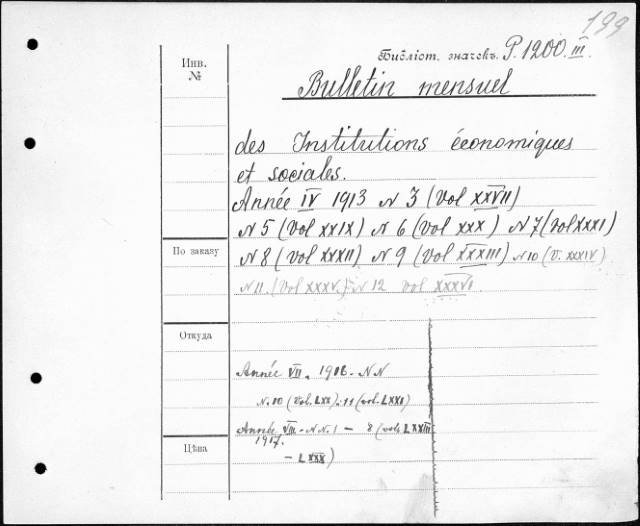 199
Библіот. значекъ. P. 1200. III.
Инв.
№
Bulletin mensuel
des Institutions économiques
et sociales.
Année IV 1913 N 3 (Vol XXVII)
N 5 (Vol XXIX) N 6 (Vol XXX) N 7 (Vol XXXI)
По заказу
N 8 (Vol XXXII) N 9 (Vol XXXIII) N 10 (V. XXXIV)
N 11. (Vol XXXV.) N 12 Vol XXXVI.
Откуда
Année VII. 1916. NN
N. 10 (Vol. LXX) : 11 (vol. LXXI)
Année VIII - NN. 1 - 8 (vol. LXXIII
1917.
Цѣна
- LXXX)